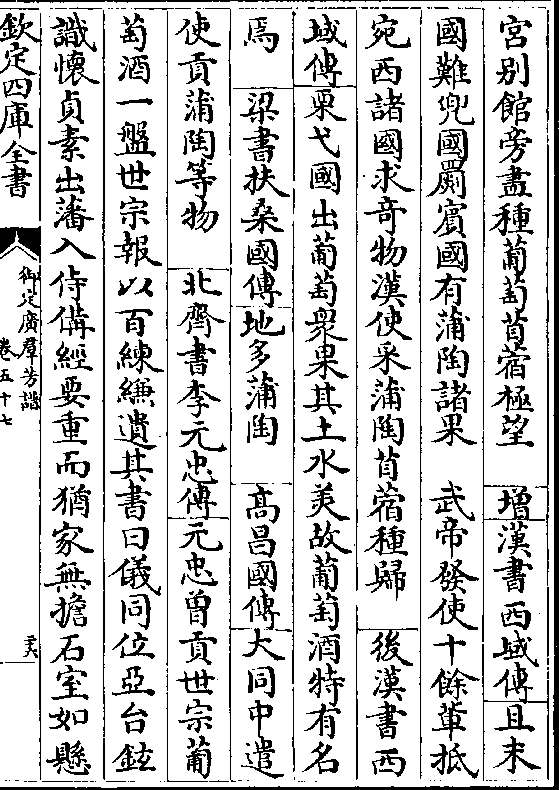 宮别館旁盡種葡萄苜蓿極望　增漢書西域傳且末
國難兜國罽賓國有蒲陶諸果　武帝發使十餘輩抵
宛西諸國求奇物漢使采蒲陶苜蓿種歸　後漢書西
域傳栗弋國出葡萄衆果其土水美故葡萄酒特有名
焉　梁書扶桑國傳地多蒲陶　高昌國傳大同中遣
使貢蒲陶等物　北齊書李元忠傳元忠曾貢世宗葡
萄酒一盤世宗報以百練縑遺其書曰儀同位亞台鉉
識懷貞素出藩入侍備經要重而猶家無擔石室如懸
欽定四庫全書
御定廣羣芳譜
卷五十七